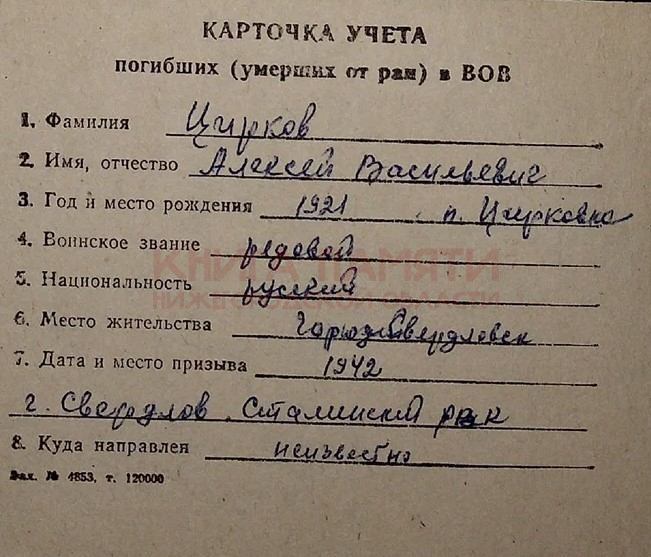 КАРТОЧКА УЧЕТА
погибших (умерших от ран) в ВОВ
1. Фамилия Цирков
2. Имя, отчество Алексей Васильевич
3. Год и место рождения 1921 п.
4. Воинское звание редовой
КНИГА ПАМЯТИ
5. Национальность русский
НИЖЕГОРОДСКОЙ ОБЛАСТИ
6. Место жительства
7. Дата и место призыва 1942
г. Свердлов. Сталинский рвк
8. Куда направлен неизвестно
Зак. № 4853, т. 120000